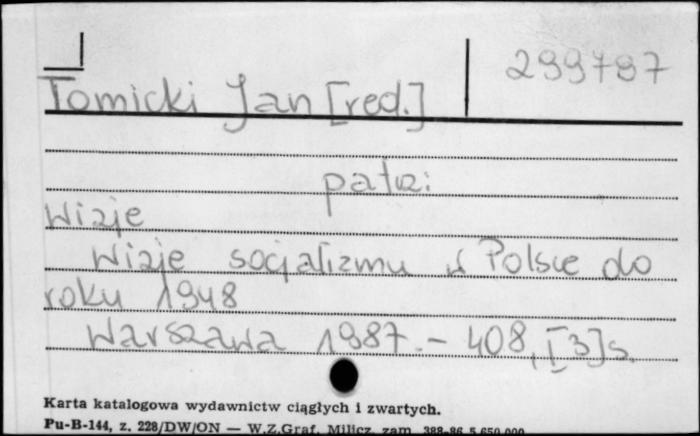 299797
Tomicki Jan [red.]
patrz:
Wizje
Wizje socjalizmu w Polsce do
roku 1948
Warszawa 1987. - 408, [3] s.
Karta katalogowa wydawnictw ciągłych i zwartych.
Pu-B-144, z. 228/DW/ON — W.Z.Graf. Milicz, zam. 388-86 5.650.000